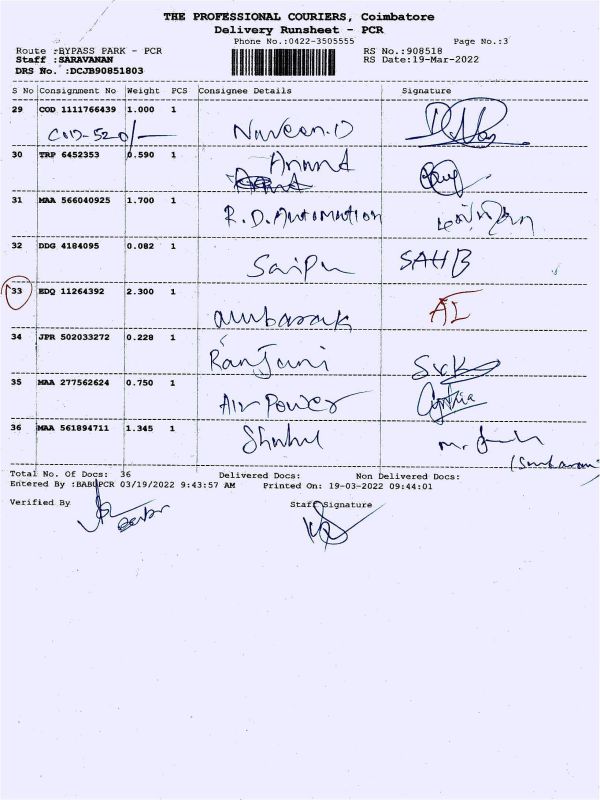 THE PROFESSIONAL COURIERS, Coimbatore
Delivery Runsheet - PCR
Phone No.:0422-3505555 Page No.:3
Route :BYPASS PARK - PCR RS No.:908518
Staff :SARAVANAN RS Date:19-Mar-2022
DRS No. :DCJB90851803
S No Consignment No Weight PCS Consignee Details Signature
29 COD 1111766439 1.000 1
COD-520/- Naveen.D
30 TRP 6452353 0.590 1 Anand
31 MAA 566040925 1.700 1 R.D.Automation
32 DDG 4184095 0.082 1
Saipu SAHB
33 EDQ 11264392 2.300 1
ambarak AL
34 JPR 502033272 0.228 1
Ranjani
35 MAA 277562624 0.750 1
Air Power
36 MAA 561894711 1.345 1 Shahul
Total No. Of Docs: 36 Delivered Docs: Non Delivered Docs:
Entered By :BABUPCR 03/19/2022 9:43:57 AM Printed On: 19-03-2022 09:44:01
Verified By Staff Signature